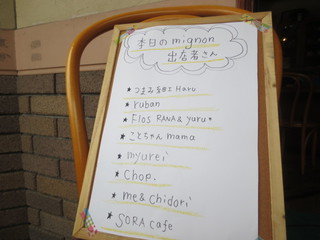 本日のmignon
出店者さん
★つまみ細工Haru
★ruban
★Flos RANA & yuru*
★ことちゃんmama
★myurei
★Chop.
★me&chidori
★SORA cafe